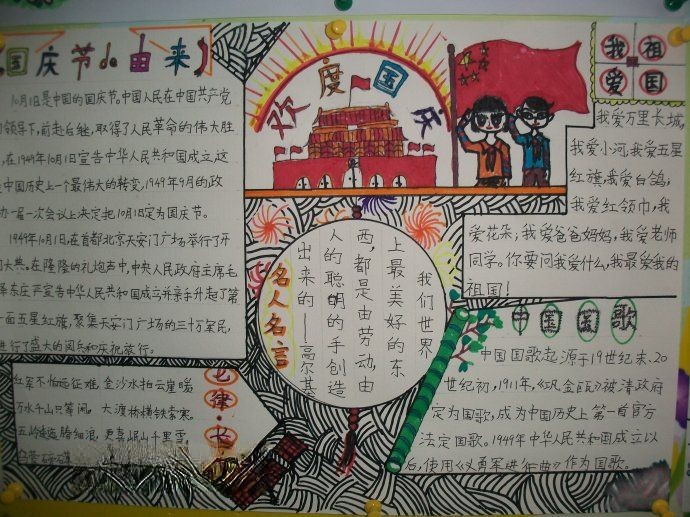 国庆节的由来
10月1日是中国的国庆节。中国人民在中国共产党
领导下,前赴后继,取得了人民革命的伟大胜
,在1949年10月1日宣告中华人民共和国成立,这
是中国历史上一个最伟大的转变,1949年9月的政
一届一次会议上决定把10月1日定为国庆节。
1949年10月1日,在首都北京天安门广场举行了开
国大典。在隆隆的礼炮声中,中央人民政府主席毛
泽东庄严宣告中华人民共和国成立并亲手升起了第
一面五星红旗,聚集天安门广场的三十万军民,
进行了盛大的阅兵和庆祝旅行。
欢度国庆
我爱祖国
我爱万里长城,
我爱小河,我爱五星
红旗,我爱白鸽,
我爱红领巾,我
爱花朵,我爱爸爸妈妈,我爱老师
同学。你要问我爱什么,我最爱我的
祖国!
名人名言
我们世界
上最美好的东
西,都是由劳动,由
人的聪明的手创造
出来的——高尔基
七律·长
红军不怕远征难,金沙水拍云崖暖
万水千山只等闲。大渡桥横铁索寒。
五岭逶迤腾细浪,更喜岷山千里雪,
中国国歌
中国国歌起源于19世纪末、20
世纪初,1911年,《巩金瓯》被清政府
定为国歌,成为中国历史上第一首官方
法定国歌。1949年中华人民共和国成立以
后,使用《义勇军进行曲》作为国歌。